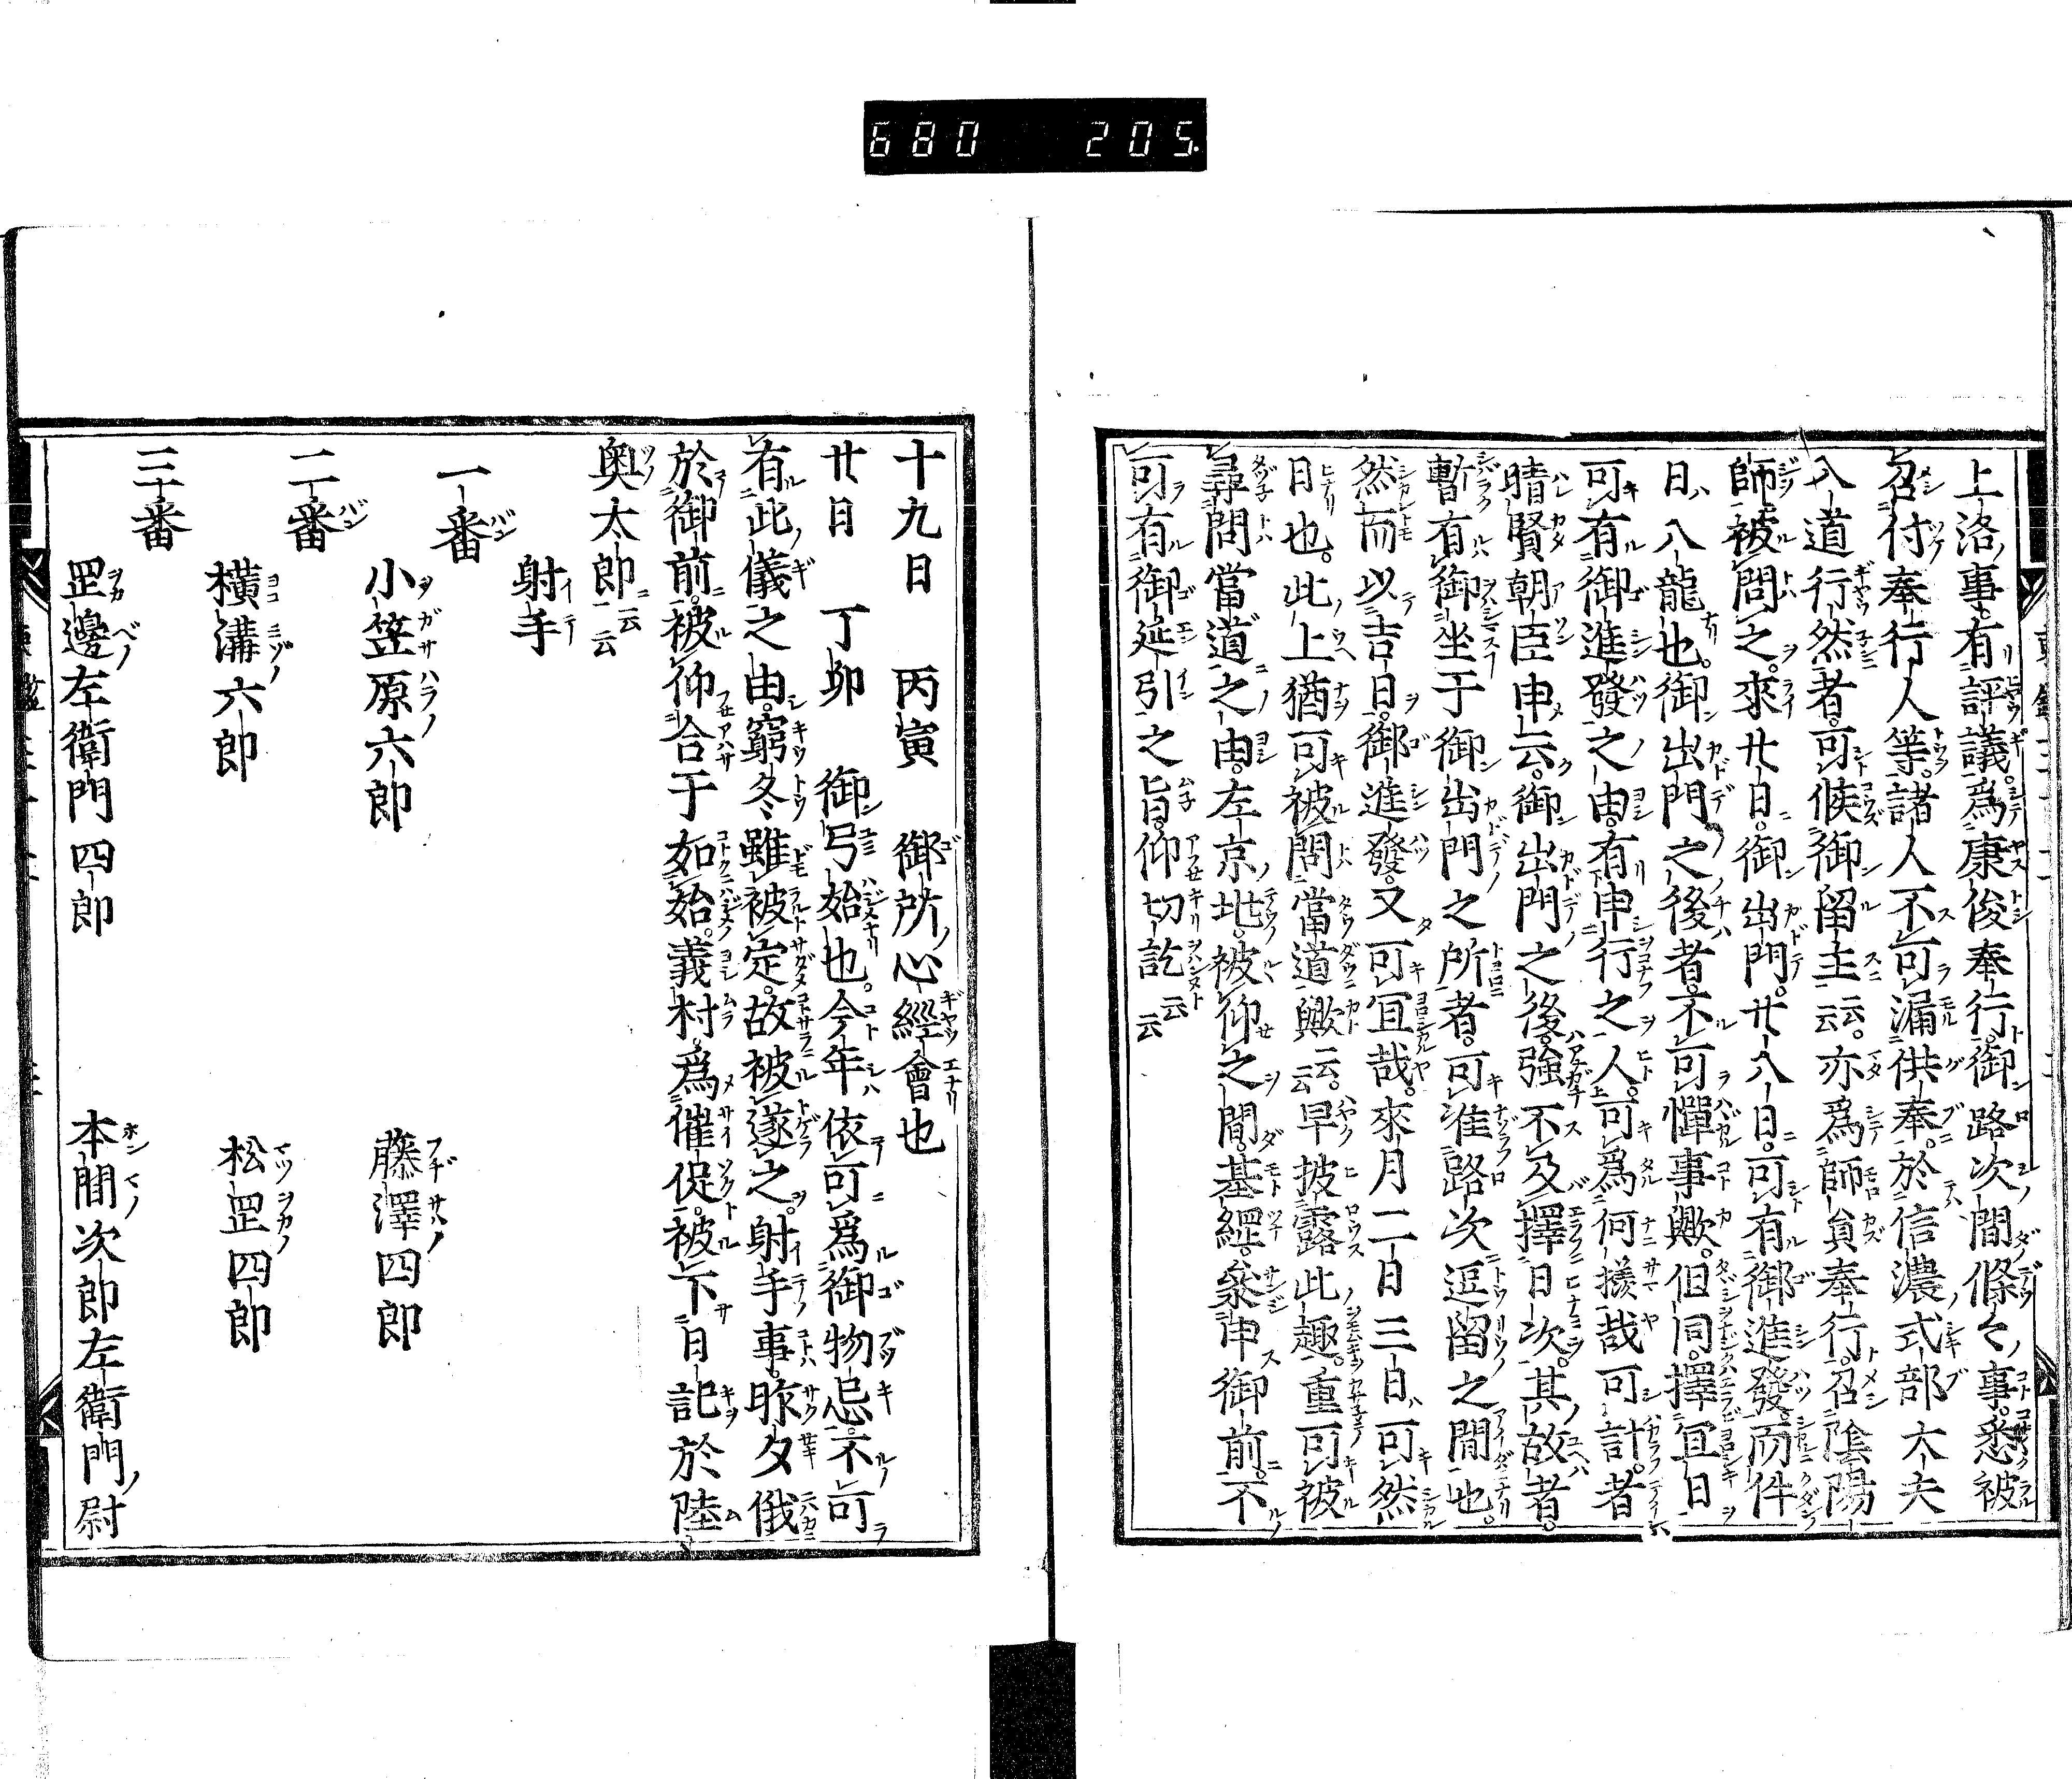 680 205
上洛事。有評議。爲康俊奉行。御路次間條々事。悉被
召付奉行人等。諸人不可漏供奉。於信濃式部大夫
入道行然者。可候御留主云云。亦爲師員奉行。召陰陽
師被問之。來廿日。御出門。廿八日。可有御進發。而件
日八龍也。御出門之後者。不可憚事歟。但同擇宜日
可有御進發之由。有申行之人。可爲何樣哉可計者
晴賢朝臣申云。御出門之後。強不及擇日次。其故者。
暫有御坐于御出門之所者。可准路次逗留之間也。
然而以吉日。御進發。又可宜哉。來月二日三日。可然
日也。此上猶可被問當道歟云云。早披露此趣。重可被
尋問當道之由。左京兆。被仰之間。基綱。參申御前。不
可有御延引之旨。仰切訖云云
十九日 丙寅 御所心經會也
廿日 丁卯 御弓始也。今年依可爲御物忌。不可
有此儀之由。窮冬雖被定。故被遂之。射手事。昨夕俄
於御前。被仰合于如始。義村。爲催促。被下日記於陸
奧太郎云云
射手
一番
小笠原六郎 藤澤四郎
二番
橫溝六郎 松罡四郎
三番
罡邊左衛門四郎 本間次郎左衛門尉